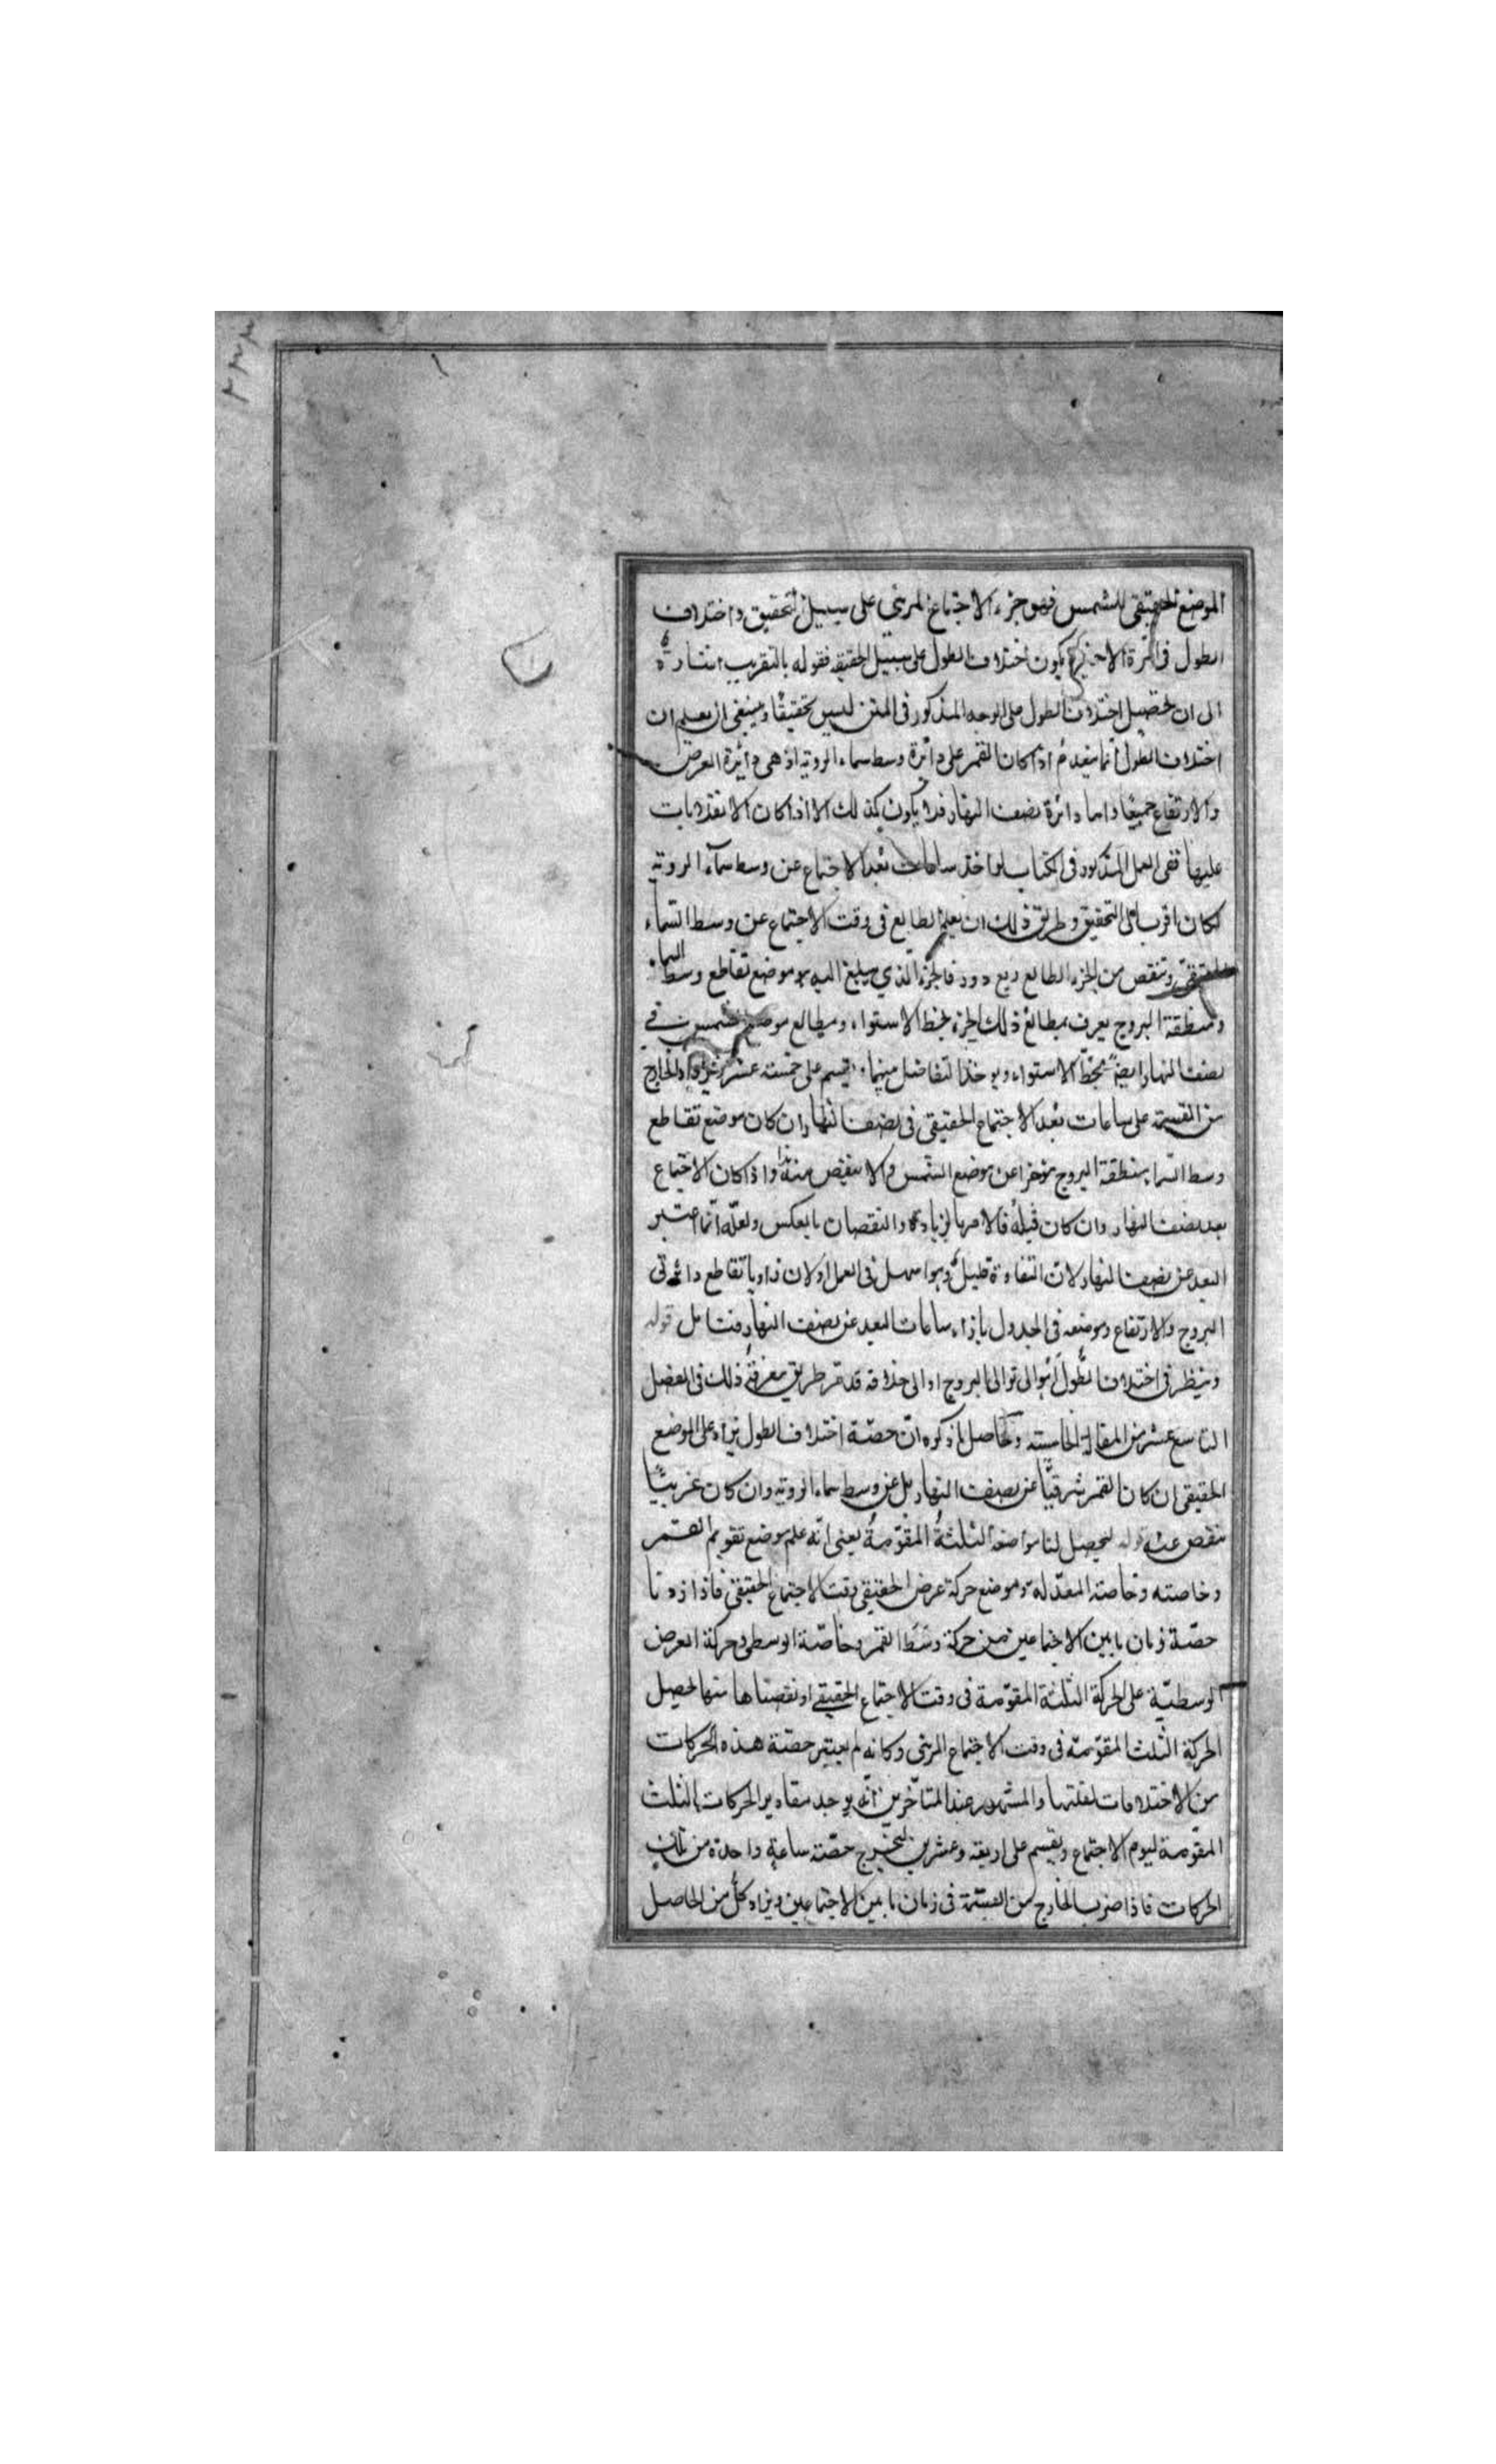 الموضع الحقيقى للشمس فهو جزء الاجتماع المرئى على سبيل التحقيق واختلاف
الطول فى المرة الاخيرة يكون اختلاف الطول على سبيل الحقيقة فقوله بالتقريب اشارة
الى ان تحصيل اختلاف الطول على الوجه المذكور فى المتن ليس تحقيقًا وينبغى ان يعلم ان
اختلاف الطول انما ينعدم اذا كان القمر على دائرة وسط سماء الروية اذ هى دائرة العرض
والارتفاع جميعًا واما دائرة نصف النهار فلا يكون كذلك الا اذا كان الانقلابات
عليها ففى العمل المذكور فى الكتاب لو اخذ ساعات بعد الاجتماع عن وسط سماء الروية
لكان اقرب الى التحقيق وطريق ذلك ان يعلم الطالع فى وقت الاجتماع عن وسط السماء
الحقيقى وتنقص من الجزء الطالع ربع دور فالجزء الذي يبلغ اليه هو موضع تقاطع وسط السماء
ومنطقة البروج يعرف بمطالع ذلك الجزء بخط الاستواء ومطالع موضع الشمس فى
نصف النهار ايضًا بخط الاستواء ويوخذ التفاضل بينهما ويقسم على خمسة عشر الخارج
من القسمة على ساعات بعد الاجتماع الحقيقى فى نصف النهار ان كان موضع تقاطع
وسط السماء بمنطقة البروج موخرا عن موضع الشمس والا ينقص منه هذا اذا كان الاجتماع
بعد نصف النهار وان كان قبله فالامر بالزيادة والنقصان بالعكس ولعله انما اعتبر
البعد عن نصف النهار لان التفاوت قليل وهو اسهل فى العمل او لان زاويا تقاطع دائرتى
البروج والارتفاع وموضعه فى الجدول بازاء ساعات البعد عن نصف النهار فتامل قوله
وينظر فى اختلاف الطول اهو الى توالى البروج او الى خلافه قد مر طريق معرفة ذلك فى الفصل
التاسع عشر من المقالة الخامسة والحاصل ما ذكره ان حصة اختلاف الطول يزاد على الموضع
الحقيقى ان كان القمر شرقيًا عن نصف النهار بل عن وسط سماء الروية وان كان غربيًا
ينقص عنه قوله ليحصل لنا مواضعه الثلثة المقوّمة يعنى انه علم موضع تقويم القمر
وخاصته وخاصته المعدّلة وموضع حركة عرض الحقيقى وقت الاجتماع الحقيقى فاذا زدنا
حصّة زمان ما بين الاجتماعين من حركة وسط القمر وخاصّة الوسطى وحركة العرض
الوسطيّة على الحركة الثلثة المقوّمة فى وقت الاجتماع الحقيقى او نقصناها منها تحصل
الحركة الثلث المقوّمة فى وقت الاجتماع المرئى وكانه لم يعتبر حصّة هذه الحركات
من الاختلافات لقلتها والمشهور عند المتاخّرين انّه يوجد مقادير الحركات الثلث
المقوّمة ليوم الاجتماع ويقسم على اربعة وعشرين ليخرج حصّة ساعة واحدة من تلك
الحركات فاذا ضرب الخارج من القسمة فى زمان ما بين الاجتماعين ويزاد كل من الحاصل